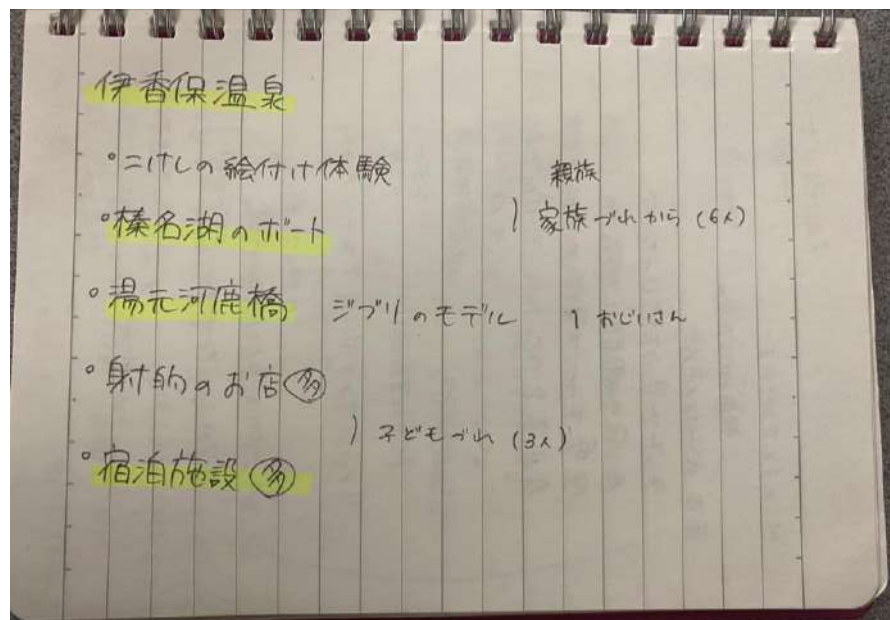 伊香保温泉
°こけしの絵付け体験
親族
°榛名湖のボート ) 家族づれから (6人)
°湯元河鹿橋 ジブリのモデル 1 おじいさん
°射的のお店 多
) 子どもづれ (3人)
°宿泊施設 多